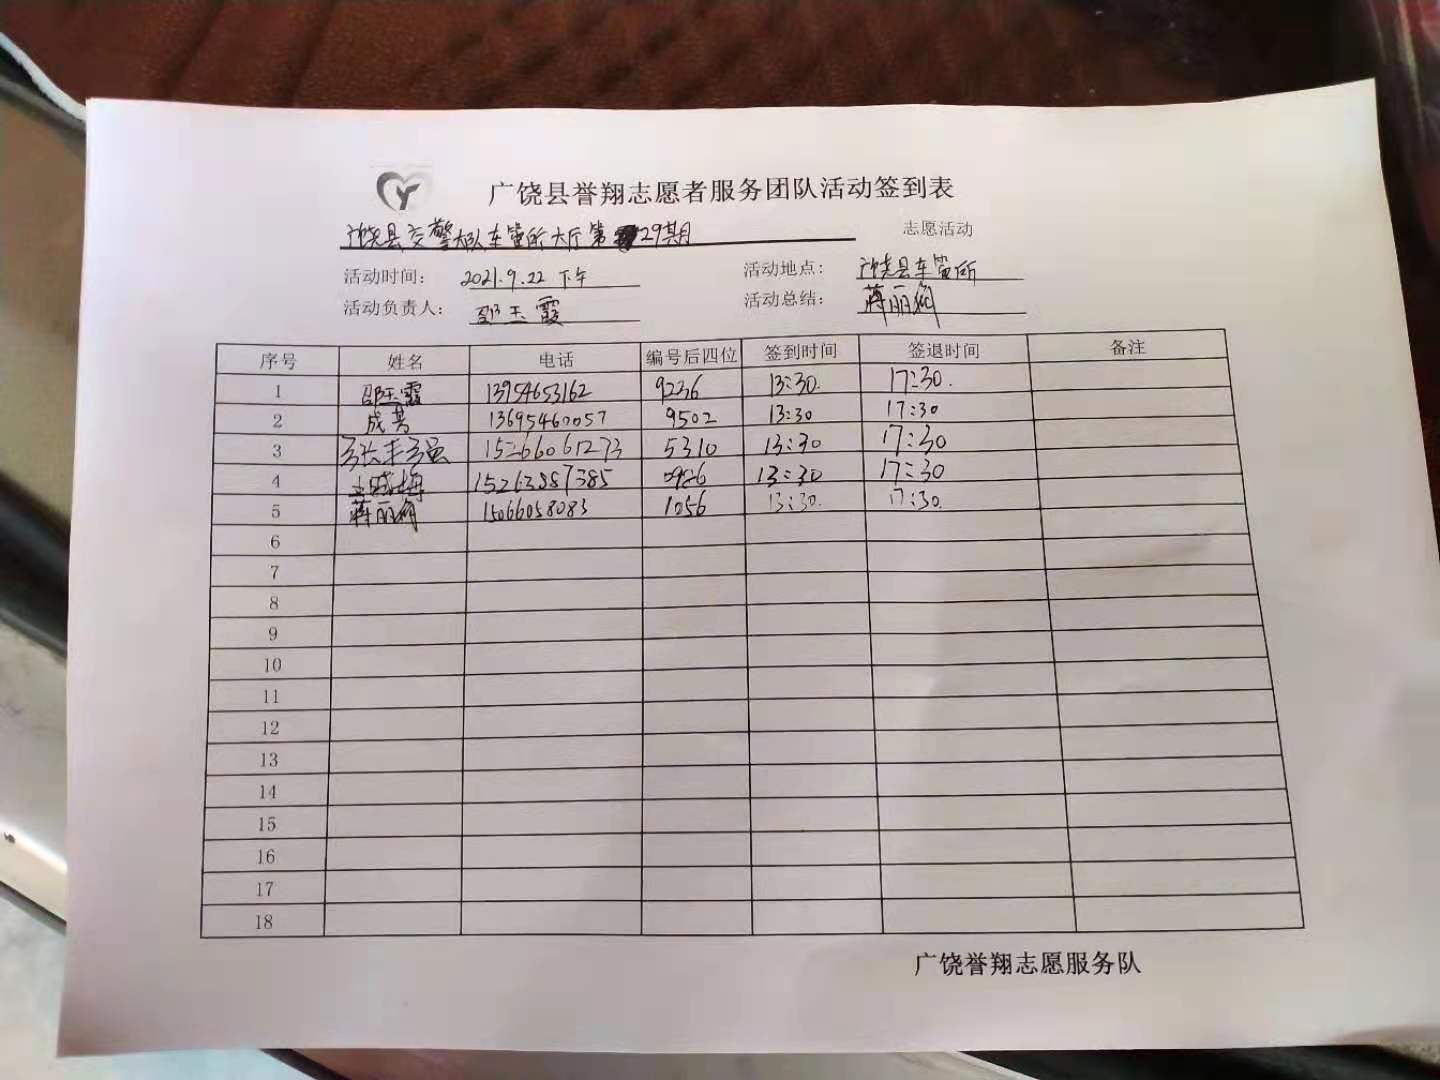 广饶县誉翔志愿者服务团队活动签到表
广饶县交警大队车管所大厅第29期 志愿活动
活动时间： 2021.9.22 下午 活动地点： 广饶县车管所
活动负责人： 邵玉霞 活动总结： 蒋丽娟
序号 姓名 电话 编号后四位 签到时间 签退时间 备注
1 邵玉霞 13954653162 9236 13:30. 17:30.
2 成芳 13695460057 9502 13:30 17:30
3 15266061273 5310 13:30 17:30
4 15263887385 13:30 17:30
5 蒋丽娟 15066058083 1056 13:30. 17:30.
6
7
8
9
10
11
12
13
14
15
16
17
18
广饶誉翔志愿服务队